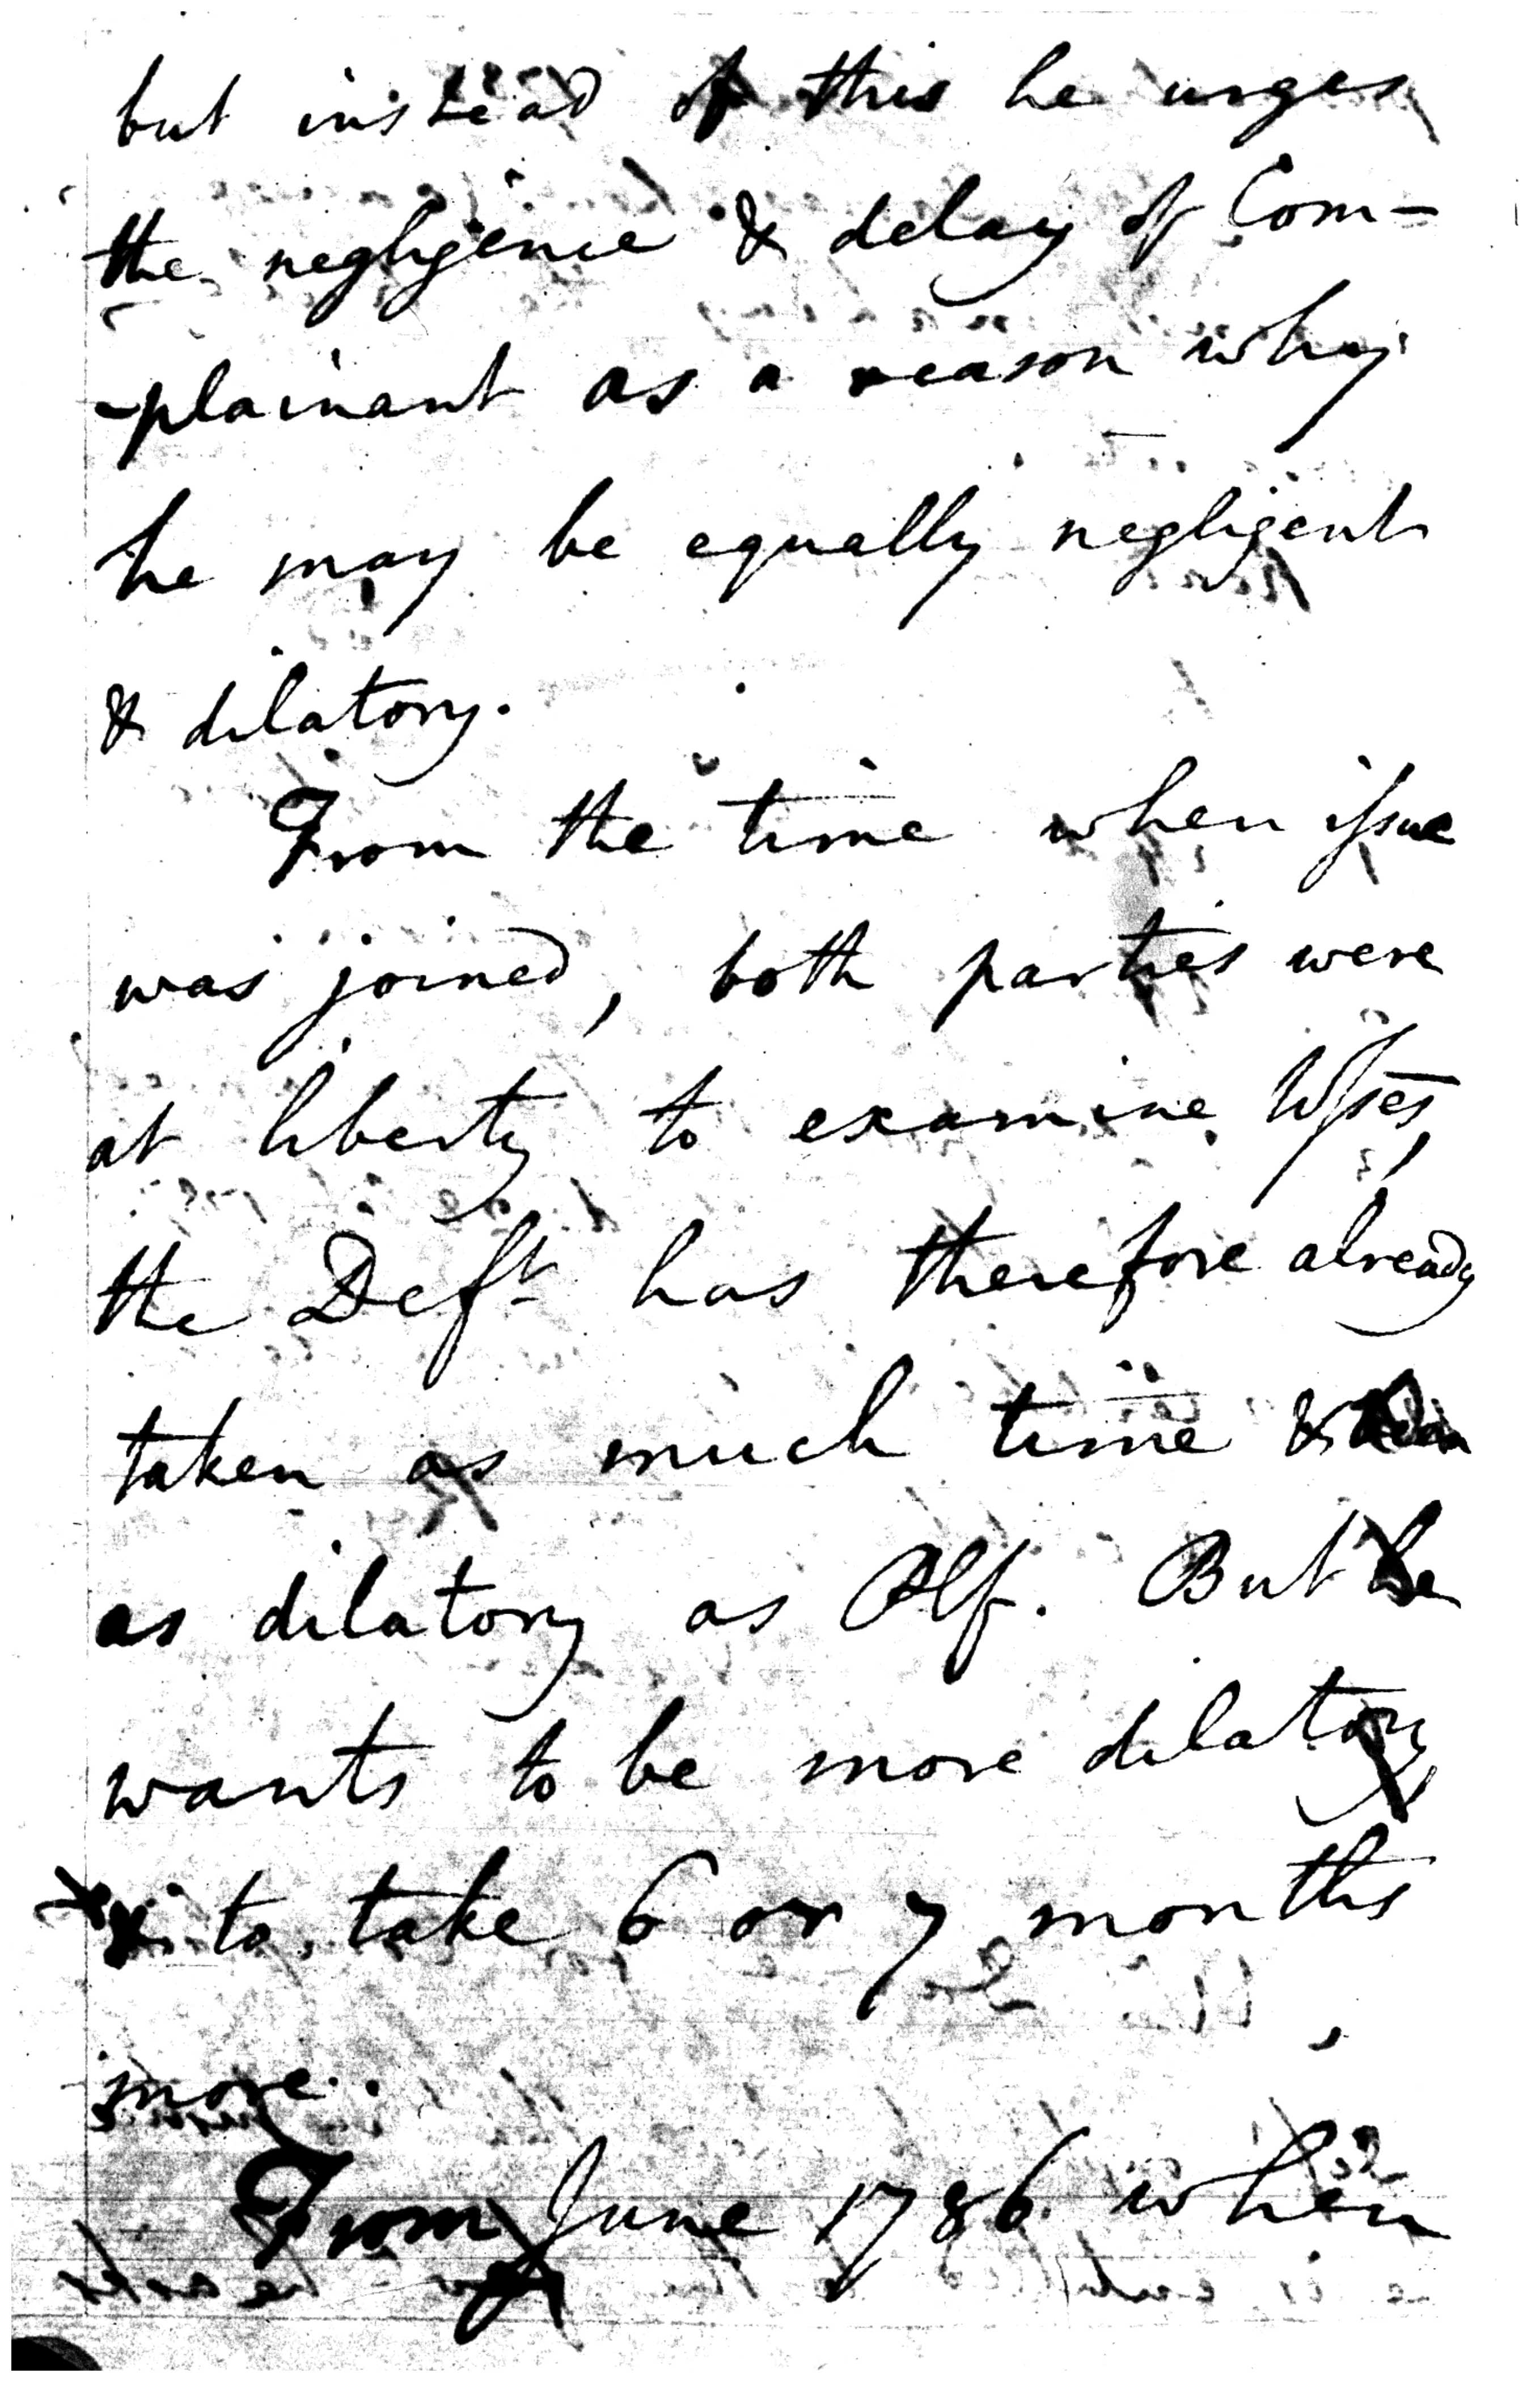 but instead of this he urges
the negligence & delay of Com-
-plainant as a reason why
he may be equally negligent
& dilatory.
From the time when issue
was joined, both parties were
at liberty to examine Wsses,
the Deft has therefore already
taken as much time &
as dilatory as Plf. But he
wants to be more dilatory
& to take 6 or 7 months
more.
From June 1786 when